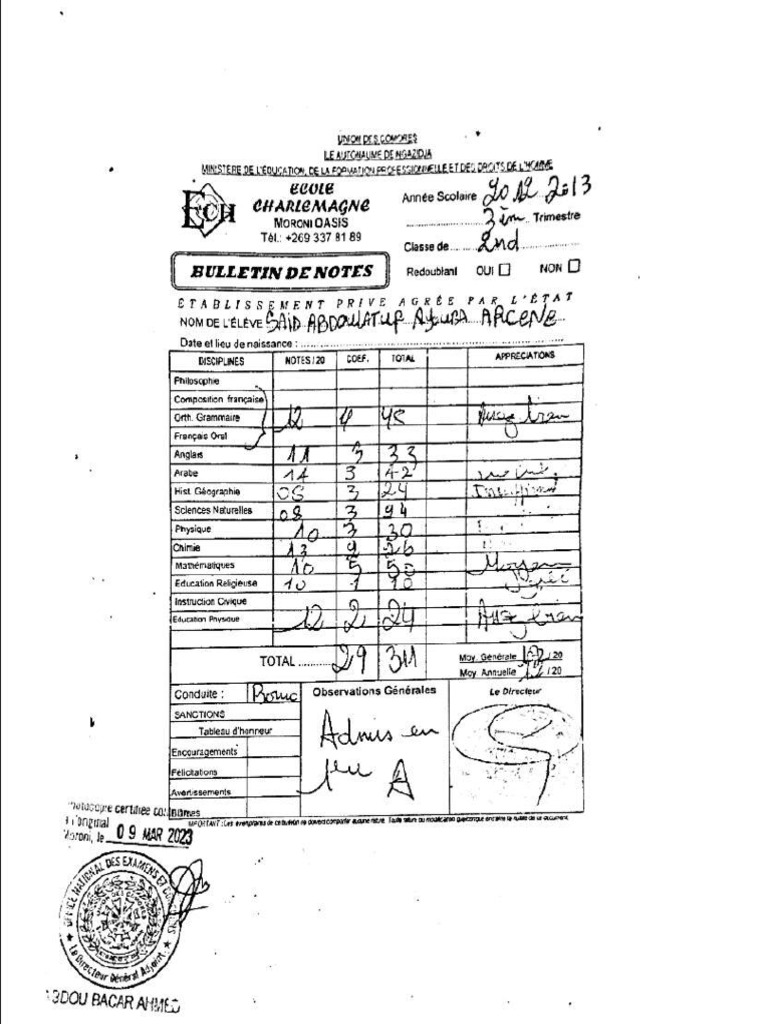 UNION DES COMORES
ILE AUTONOME DE NGAZIDJA
MINISTERE DE L'ÉDUCATION, DE LA FORMATION PROFESSIONNELLE ET DES DROITS DE L'HOMME
ECH
ECOLE
CHARLEMAGNE
MORONI OASIS
Tél.: +269 337 81 89
Année Scolaire 2012 2013
3èm Trimestre
Classe de 2nd
Redoublant OUI NON
BULLETIN DE NOTES
ÉTABLISSEMENT PRIVE AGRÉE PAR L'ÉTAT
NOM DE L'ÉLÈVE SAID ABDOULATUF Ayuba ARCENE
Date et lieu de naissance :
DISCIPLINES NOTES / 20 COEF. TOTAL APPRECIATIONS
Philosophie
Composition française
Orth. Grammaire 12 4 48 Assez bien
Français Oral
Anglais 11 3 33
Arabe 14 3 42
Hist. Géographie 08 3 24
Sciences Naturelles 08 3 94
Physique 10 3 30
Chimie 13 2 26
Mathématiques 10 5 50 Moyen
Education Religieuse 10 1 10
Instruction Civique
Education Physique 12 2 24 Assez bien
TOTAL 29 311 Moy. Générale / 20
Moy Annuelle / 20
Conduite : Bonne Observations Générales Le Directeur
SANCTIONS
Tableau d'honneur
Encouragements
Félicitations
Avertissements
Admis en
A
IMPORTANT :
Photocopie certifiée conforme
à l'original
Moroni, le 09 MAR 2023
OFFICE NATIONAL DES EXAMENS ET
Le Directeur Général Adjoint
ABDOU BACAR AHMED